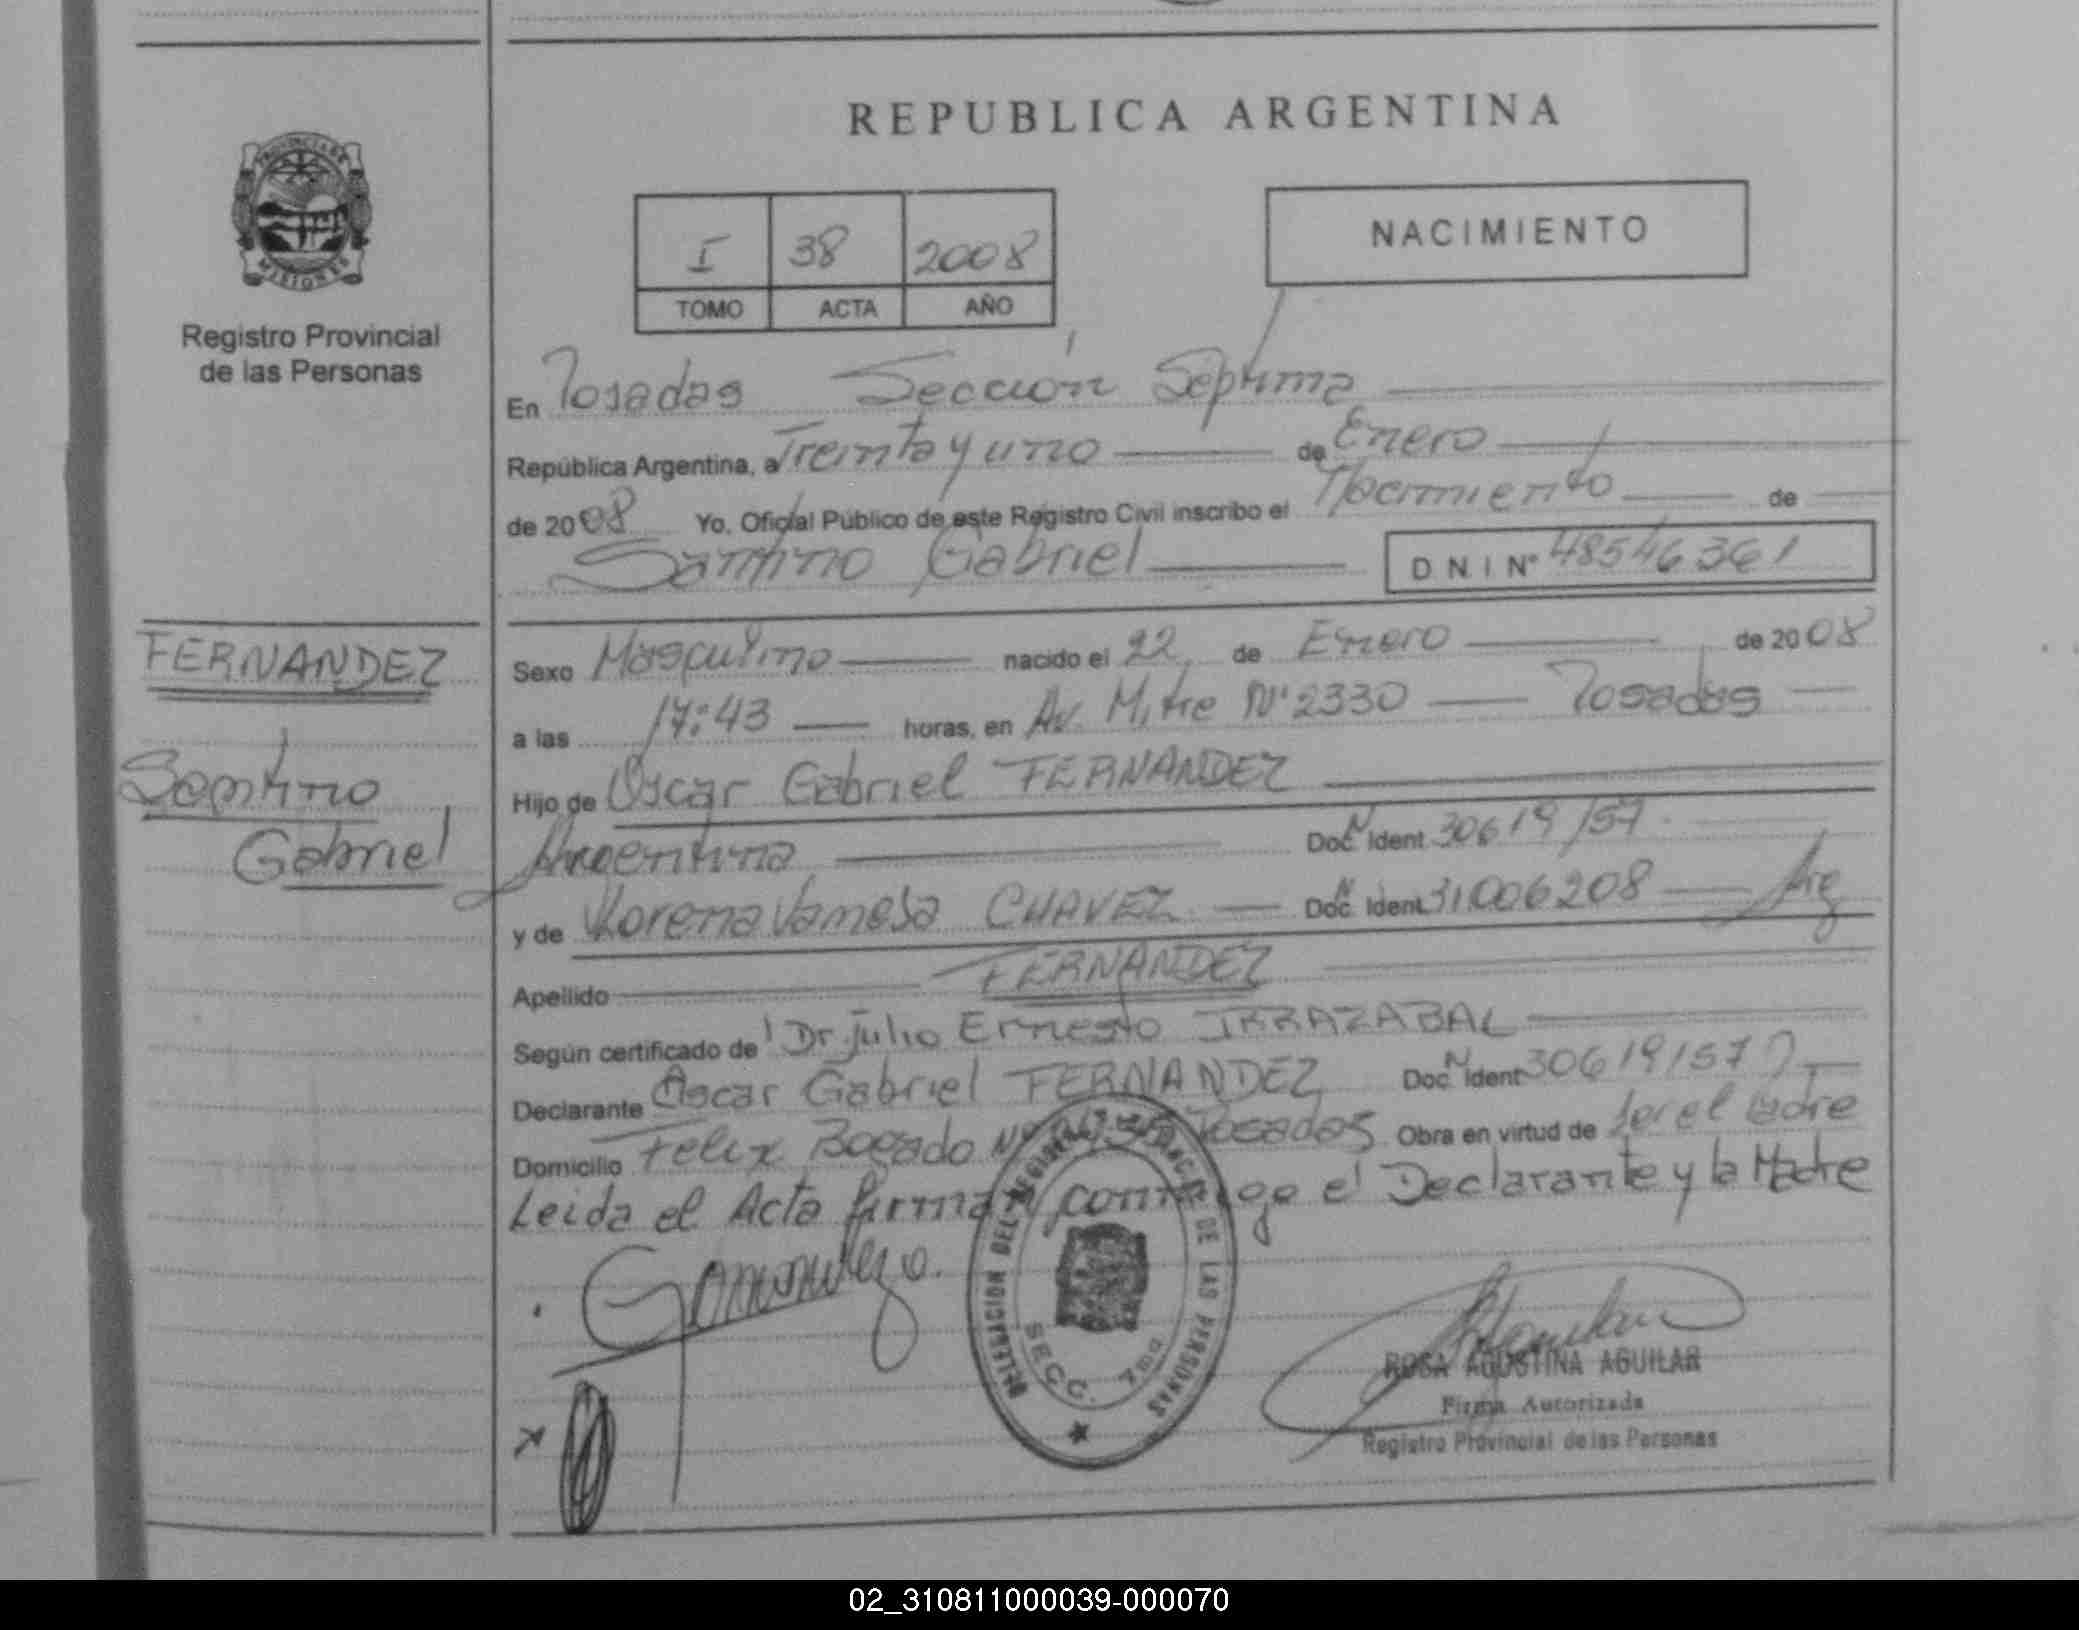 REPUBLICA ARGENTINA
PROVINCIA DE
MISIONES
Registro Provincial
de las Personas
I 38 2008
TOMO ACTA AÑO
NACIMIENTO
En Posadas Sección Séptima
República Argentina, a Treinta y uno de Enero
de 2008 Yo, Oficial Público de este Registro Civil inscribo el Nacimiento de
Santino Gabriel DNI Nº 48546361
FERNANDEZ
Santino
Gabriel
Sexo Masculino nacido el 22 de Enero de 2008
a las 17:43 horas, en Av. Mitre Nº 2330 Posadas
Hijo de Oscar Gabriel FERNANDEZ
Argentina Doc. N Ident 30619157
y de Lorena Vanesa CHAVEZ Doc. N Ident 31006208 Arg
Apellido FERNANDEZ
Según certificado de Dr Julio Ernesto IRRAZABAL
Declarante Oscar Gabriel FERNANDEZ Doc. N Ident 30619157
Domicilio Felix Bogado Posadas Obra en virtud de ser el Padre
Leida el Acta firman conmigo el Declarante y la Madre
DELEGACION DEL REGISTRO PROVINCIAL DE LAS PERSONAS
SECC. 7ma
ROSA AGUSTINA AGUILAR
Firma Autorizada
Registro Provincial de las Personas
02_310811000039-000070